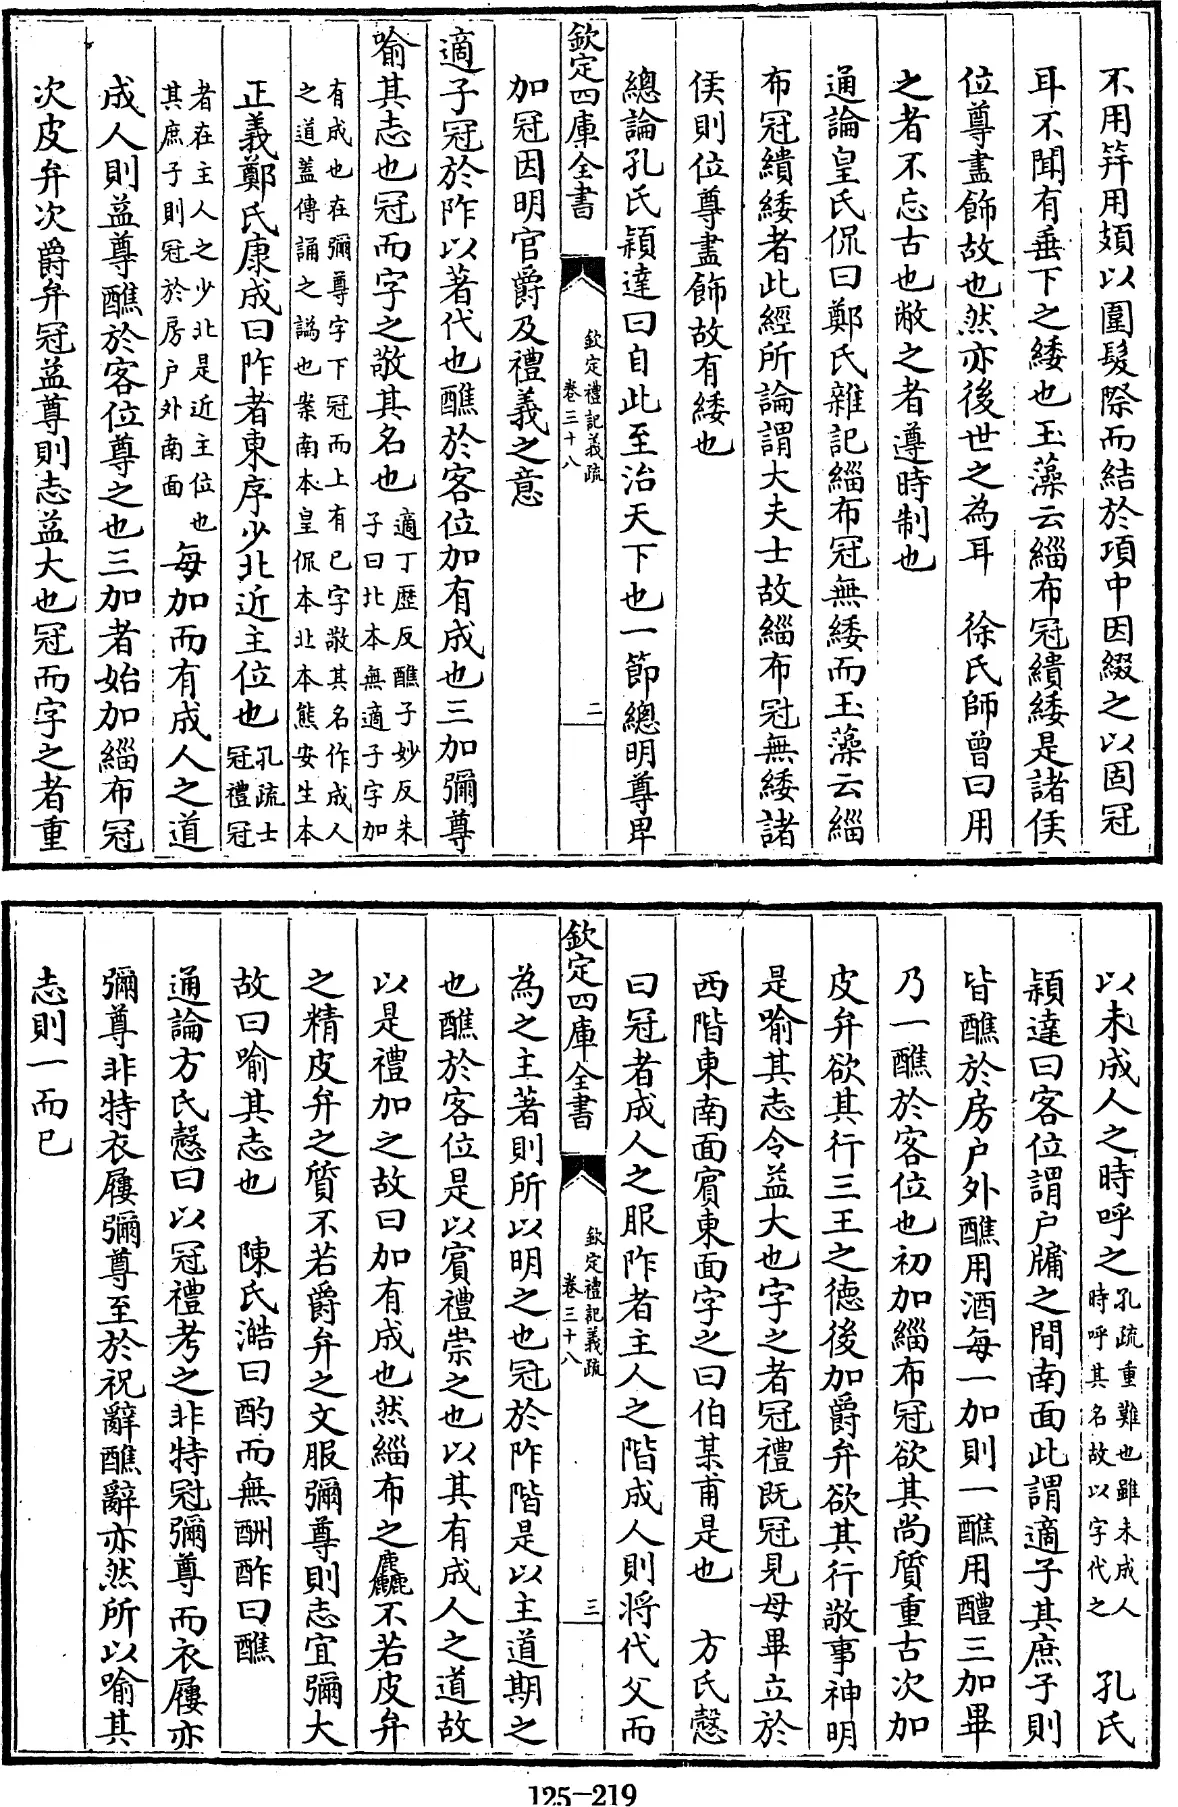 不用筓用頍以圍髮際而結於項中因綴之以固冠
耳不聞有垂下之緌也玉藻云緇布冠繢緌是諸侯
位尊盡飾故也然亦後世之為耳　徐氏師曾曰用
之者不忘古也敝之者遵時制也
通論皇氏侃曰鄭氏雜記緇布冠無緌而玉藻云緇
布冠繢緌者此經所論謂大夫士故緇布冠無緌諸
侯則位尊盡飾故有緌也
總論孔氏穎達曰自此至治天下也一節總明尊卑
欽定四庫全書
欽定禮記義疏
卷三十八
二
加冠因明官爵及禮義之意
適子冠於阼以著代也醮於客位加有成也三加彌尊
喻其志也冠而字之敬其名也
適丁歴反醮子妙反朱
子曰北本無適子字加
有成也在彌尊字下冠而上有已字敬其名作成人
之道蓋傳誦之譌也案南本皇侃本北本熊安生本
正義鄭氏康成曰阼者東序少北近主位也
孔疏士
冠禮冠
者在主人之少北是近主位也
其庶子則冠於房戶外南面
每加而有成人之道
成人則益尊醮於客位尊之也三加者始加緇布冠
次皮弁次爵弁冠益尊則志益大也冠而字之者重
以未成人之時呼之
孔疏重難也雖未成人
時呼其名故以字代之
孔氏
穎達曰客位謂戶牖之間南面此謂適子其庶子則
皆醮於房戶外醮用酒每一加則一醮用醴三加畢
乃一醮於客位也初加緇布冠欲其尚質重古次加
皮弁欲其行三王之德後加爵弁欲其行敬事神明
是喻其志令益大也字之者冠禮既冠見母畢立於
西階東南面賓東面字之曰伯某甫是也　方氏慤
曰冠者成人之服阼者主人之階成人則將代父而
欽定四庫全書
欽定禮記義疏
卷三十八
三
為之主著則所以明之也冠於阼階是以主道期之
也醮於客位是以賓禮崇之也以其有成人之道故
以是禮加之故曰加有成也然緇布之麤不若皮弁
之精皮弁之質不若爵弁之文服彌尊則志宜彌大
故曰喻其志也　陳氏澔曰酌而無酬酢曰醮
通論方氏慤曰以冠禮考之非特冠彌尊而衣屨亦
彌尊非特衣屨彌尊至於祝辭醮辭亦然所以喻其
志則一而已
125-219